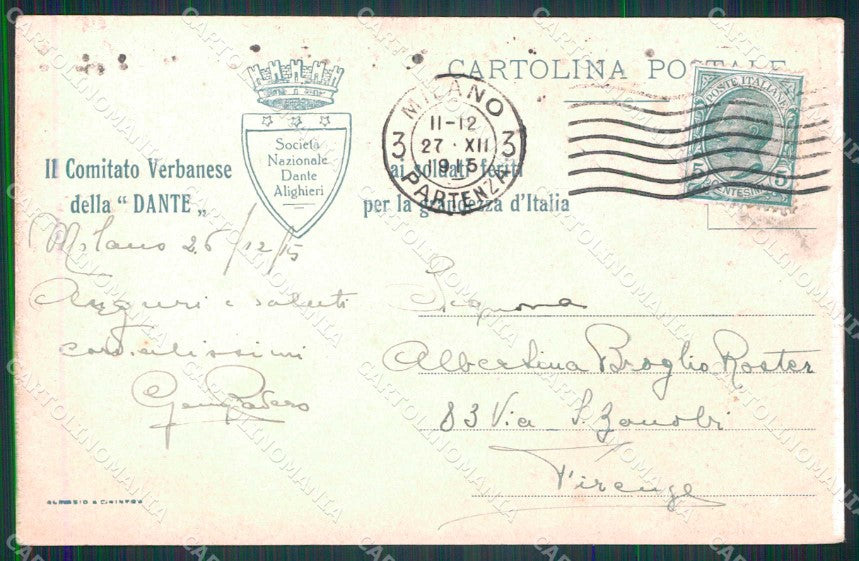 CARTOLINA POSTALE
Società
Nazionale
Dante
Alighieri
Il Comitato Verbanese
della "DANTE„
ai soldati feriti
per la grandezza d'Italia
MILANO
11-12
3 27·XII 3
1915
PARTENZA
POSTE ITALIANE
5 5
CENTESIMI
Milano 26/12/15
Auguri e saluti
cordialissimi
Signora
Albertina Broglio Roster
83 Via S. Zanobi
Firenze
CARTOLINOMANIA